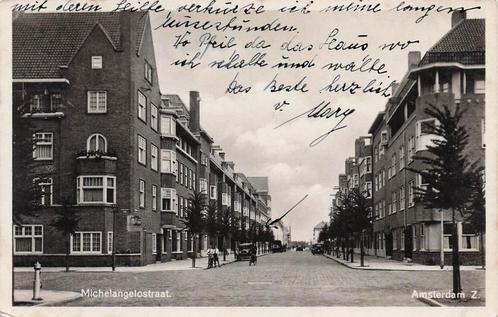 mit deren Hilfe verkürze ich meine langen
Mussestunden.
Wo Pfeil da das Haus wo
ich schalte und walte.
Das Beste herzlich
v. Mary
Michelangelostraat.
Amsterdam Z.